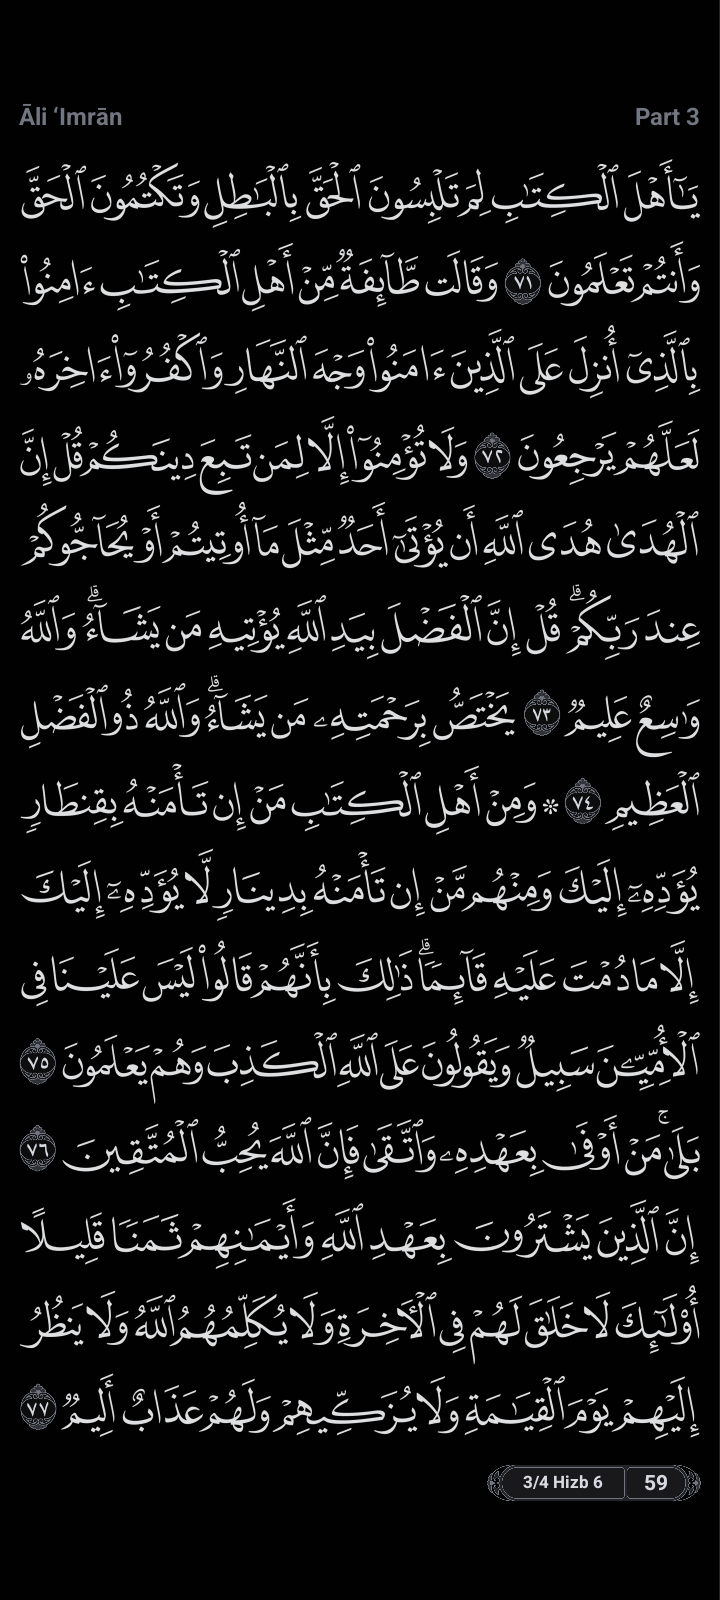 Āli ‘Imrān
Part 3
يَـٰٓأَهْلَ ٱلْكِتَـٰبِ لِمَ تَلْبِسُونَ ٱلْحَقَّ بِٱلْبَـٰطِلِ وَتَكْتُمُونَ ٱلْحَقَّ
وَأَنتُمْ تَعْلَمُونَ ٧١ وَقَالَت طَّآئِفَةٌ مِّنْ أَهْلِ ٱلْكِتَـٰبِ ءَامِنُوا۟
بِٱلَّذِىٓ أُنزِلَ عَلَى ٱلَّذِينَ ءَامَنُوا۟ وَجْهَ ٱلنَّهَارِ وَٱكْفُرُوٓا۟ ءَاخِرَهُۥ
لَعَلَّهُمْ يَرْجِعُونَ ٧٢ وَلَا تُؤْمِنُوٓا۟ إِلَّا لِمَن تَبِعَ دِينَكُمْ قُلْ إِنَّ
ٱلْهُدَىٰ هُدَى ٱللَّهِ أَن يُؤْتَىٰٓ أَحَدٌ مِّثْلَ مَآ أُوتِيتُمْ أَوْ يُحَآجُّوكُمْ
عِندَ رَبِّكُمْ ۗ قُلْ إِنَّ ٱلْفَضْلَ بِيَدِ ٱللَّهِ يُؤْتِيهِ مَن يَشَآءُ ۗ وَٱللَّهُ
وَٰسِعٌ عَلِيمٌ ٧٣ يَخْتَصُّ بِرَحْمَتِهِۦ مَن يَشَآءُ ۗ وَٱللَّهُ ذُو ٱلْفَضْلِ
ٱلْعَظِيمِ ٧٤ ۞ وَمِنْ أَهْلِ ٱلْكِتَـٰبِ مَنْ إِن تَأْمَنْهُ بِقِنطَارٍ
يُؤَدِّهِۦٓ إِلَيْكَ وَمِنْهُم مَّنْ إِن تَأْمَنْهُ بِدِينَارٍ لَّا يُؤَدِّهِۦٓ إِلَيْكَ
إِلَّا مَا دُمْتَ عَلَيْهِ قَآئِمًا ۗ ذَٰلِكَ بِأَنَّهُمْ قَالُوا۟ لَيْسَ عَلَيْنَا فِى
ٱلْأُمِّيِّـۧنَ سَبِيلٌ وَيَقُولُونَ عَلَى ٱللَّهِ ٱلْكَذِبَ وَهُمْ يَعْلَمُونَ ٧٥
بَلَىٰ ۚ مَنْ أَوْفَىٰ بِعَهْدِهِۦ وَٱتَّقَىٰ فَإِنَّ ٱللَّهَ يُحِبُّ ٱلْمُتَّقِينَ ٧٦
إِنَّ ٱلَّذِينَ يَشْتَرُونَ بِعَهْدِ ٱللَّهِ وَأَيْمَـٰنِهِمْ ثَمَنًا قَلِيلًا
أُو۟لَـٰٓئِكَ لَا خَلَـٰقَ لَهُمْ فِى ٱلْـَٔاخِرَةِ وَلَا يُكَلِّمُهُمُ ٱللَّهُ وَلَا يَنظُرُ
إِلَيْهِمْ يَوْمَ ٱلْقِيَـٰمَةِ وَلَا يُزَكِّيهِمْ وَلَهُمْ عَذَابٌ أَلِيمٌ ٧٧
3/4 Hizb 6
59